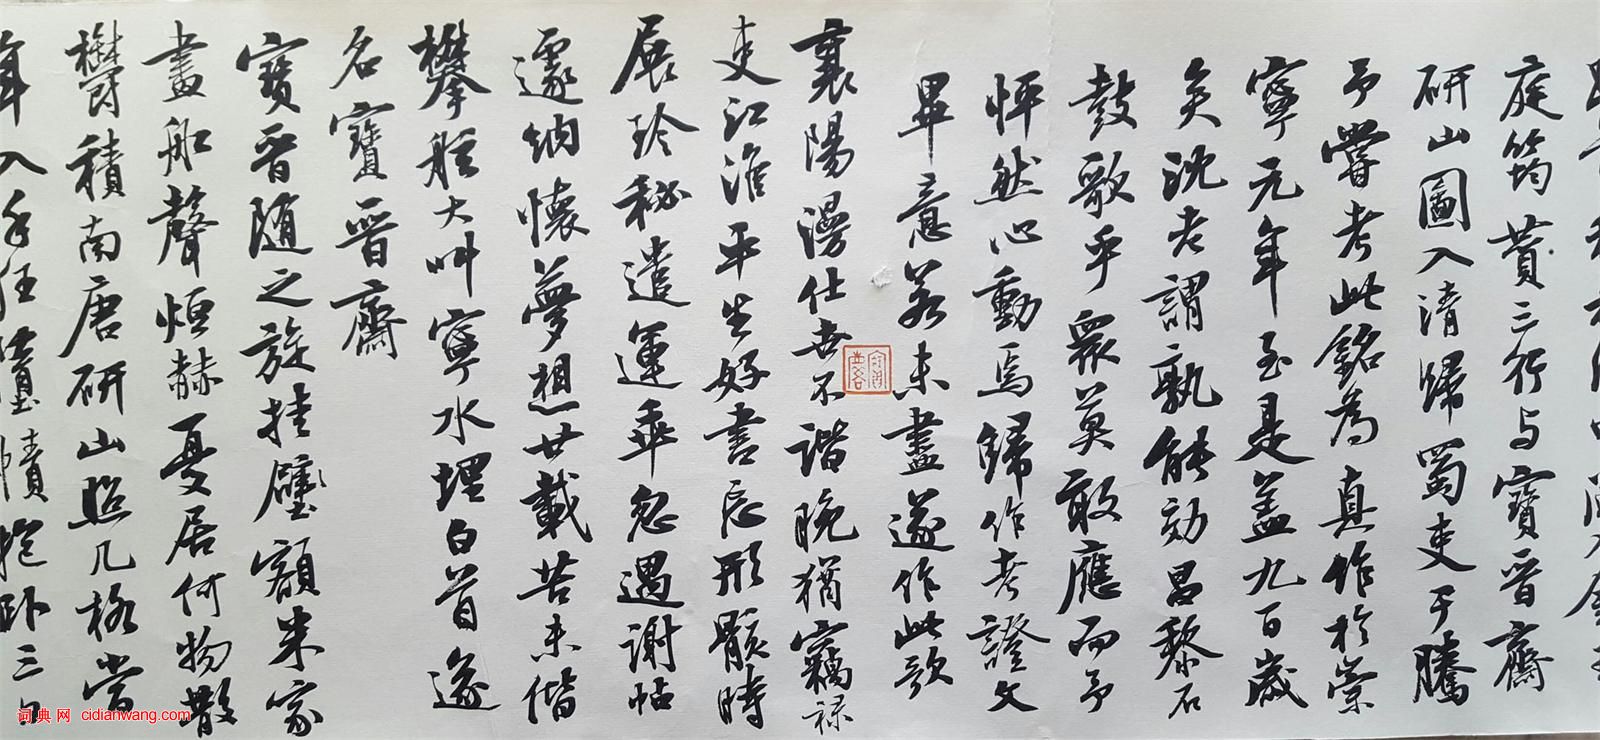 庭筠黃三行与寶晋齋
研山圖入清歸蜀吏于騰
予嘗考此銘為真作於崇
寧元年至是盖九百歲
矣沈老謂孰能効昌黎石
鼓歌乎眾莫敢應而予
怦然心動焉歸作考證文
畢意若未盡遂作此歌
襄陽漫仕世不諧晚猶竊祿
吏江淮平生好書忘形骸時
展珍秘遣運乖忽遇谢帖
邃納懷夢想廿載苦未偕
攀舷大叫寧水埋白首遂
名寶晋齋
寶晋随之旋挂壁額米家
畫舩聲烜赫憂居何物散
鬱積南唐研山照几格嘗
年入手狂墮幘抱卧三日
词典网 cidianwang.com